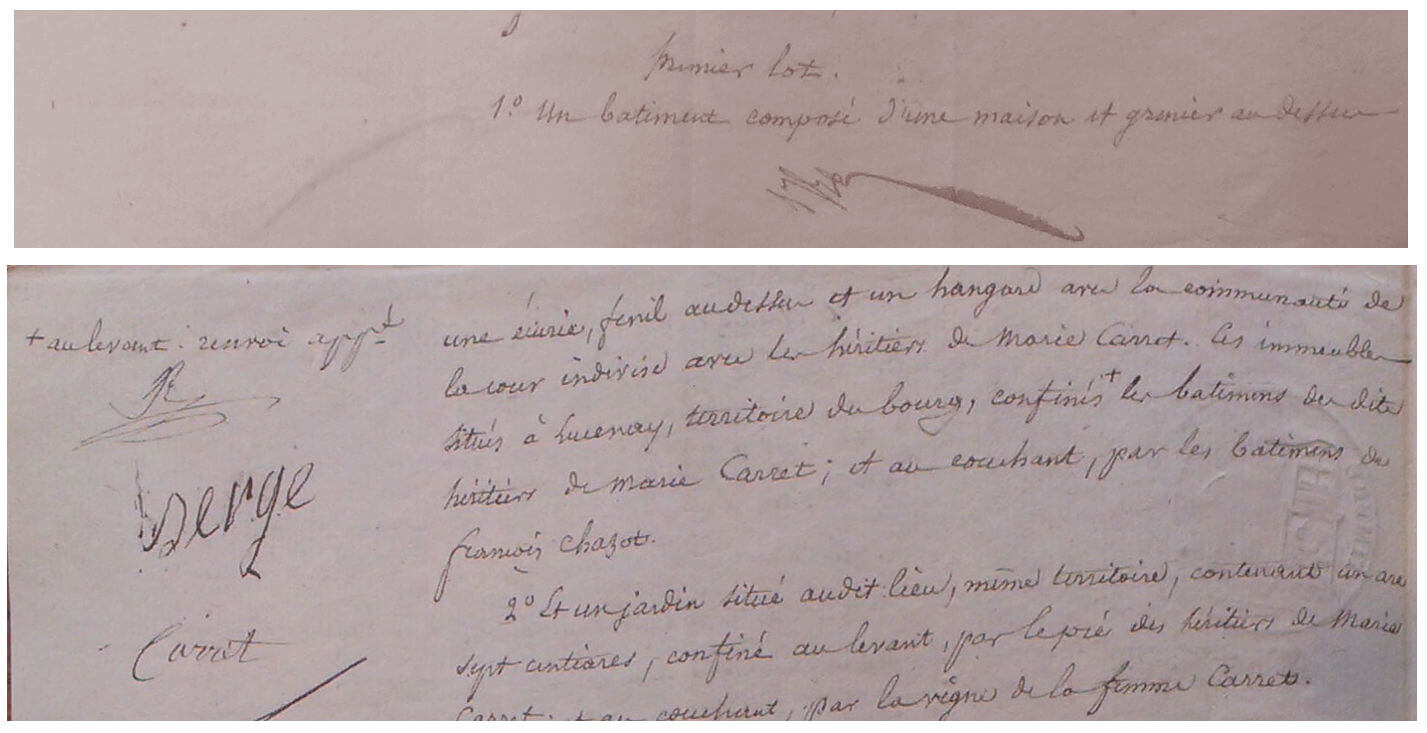 premier lot.
1.° Un batiment composé d'une maison et grenier au dessus
une écurie, fenil au dessus et un hangard avec la communauté de
la cour indivise avec les héritiers de Marie Carret. Ces immeubles
situés à Lucenay, territoire du bourg, confinés + les batimens des dits
héritiers de Marie Carret; et au couchant, par les batimens de
françois Chazot.
2° Et un jardin situé audit lieu, même territoire, contenant un are
sept centiares, confiné au levant, par le pré des héritiers de Marie
Carret; et au couchant, par la vigne de la femme Carret.
+ au levant. renvoi app.t
Berge
Carret